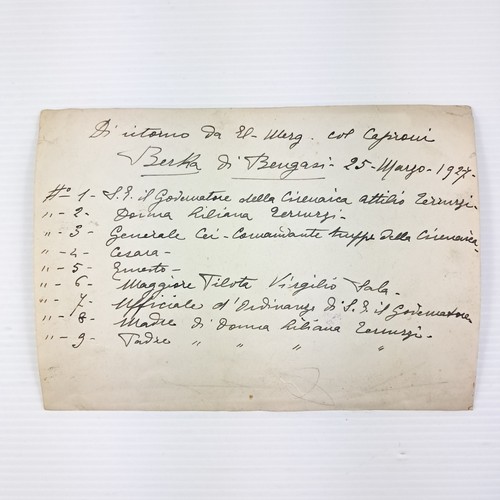 Di ritorno da El-Merg. col Caproni
Berka di Bengasi - 25 - Marzo - 1927 -
N° 1 - S. E. il Governatore della Cirenaica Attilio Terruzzi -
" - 2 - Donna Liliana Terruzzi -
" - 3 - Generale Cei - Comandante truppe della Cirenaica -
" - 4 - Cesara -
" - 5 - Ernesto -
" - 6 - Maggiore Pilota Virgilio Sala -
" - 7 - Ufficiale d'Ordinanza di S. E. il Governatore
" - 8 - Madre di Donna Liliana Terruzzi -
" - 9 - Padre " " " "